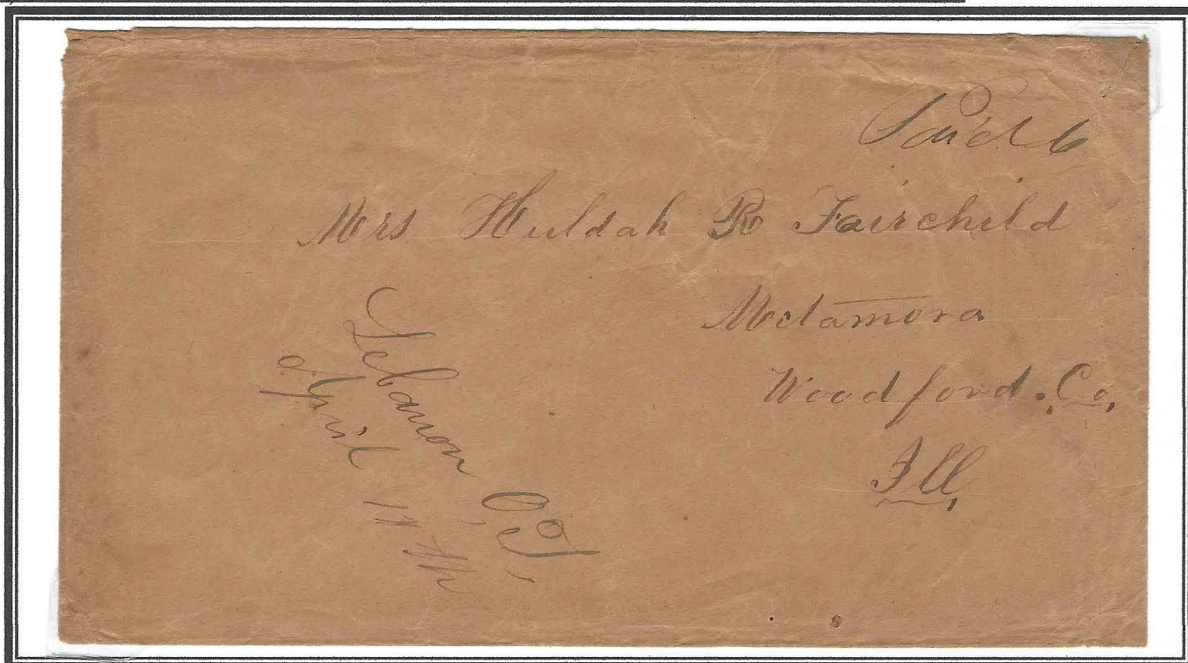 Paid 6
Mrs Huldah R Fairchild
Metamora
Woodford. Co,
Ill,
Lebanon O,T,
April